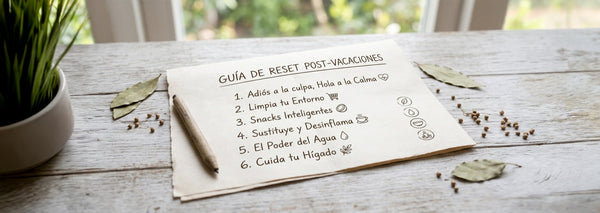 GUÍA DE RESET POST-VACACIONES
1. Adiós a la culpa, Hola a la Calma
2. Limpia tu Entorno
3. Snacks Inteligentes
4. Sustituye y Desinflama
5. El Poder del Agua
6. Cuida tu Hígado